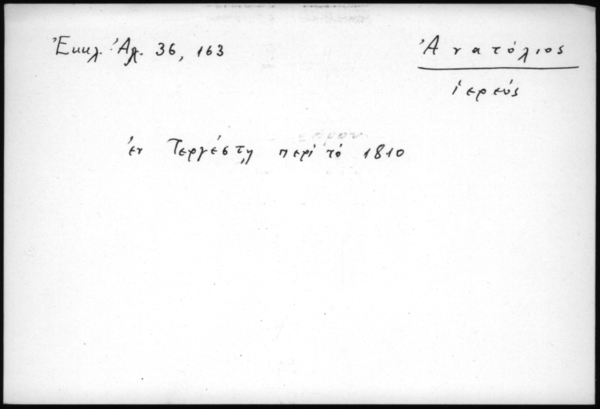 Ἐκκλ. Ἀλ. 36, 163
Ἀνατόλιος
ἱερεύς
ἐν Τεργέστῃ περὶ τὸ 1810